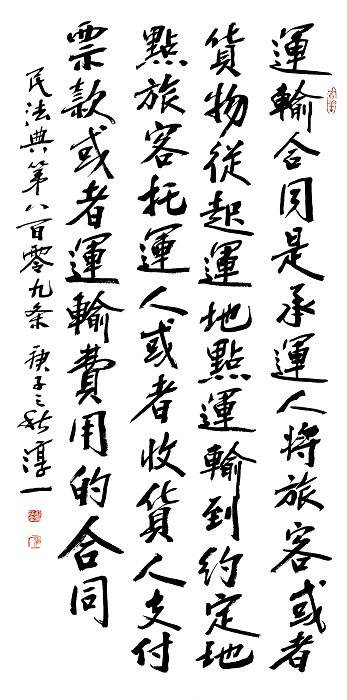 運輸合同是承運人將旅客或者
貨物從起運地點運輸到約定地
點旅客托運人或者收貨人支付
票款或者運輸費用的合同
民法典第八百零九条 庚子之秋 淳一